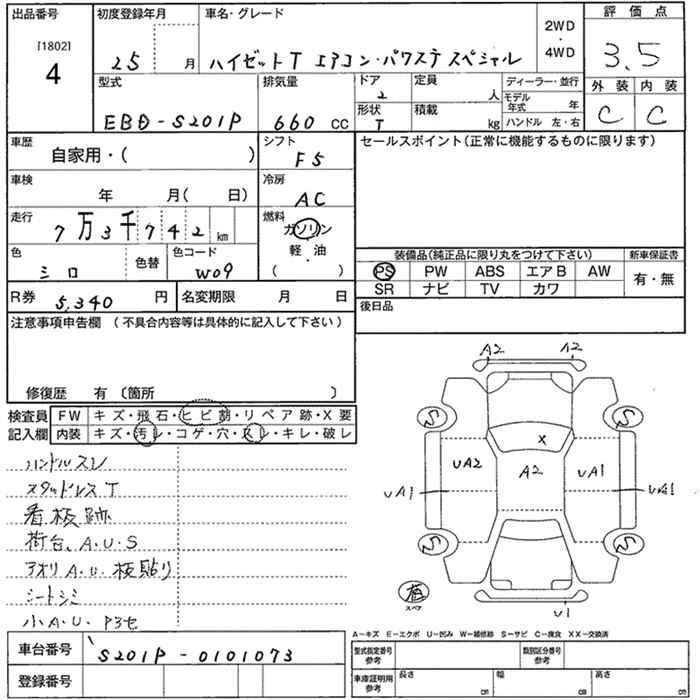 出品番号 初度登録年月 車名・グレード 2WD・4WD 評価点
[1802]
4 25 月 ハイゼットT エアコン・パワステ スペシャル 3.5
型式 排気量 ドア 定員 ディーラー・並行 外装 内装
2 人 モデル年式 年
EBD-S201P 660 CC 形状 T 積載 kg ハンドル 左・右 C C
車歴 自家用・( ) シフト F5 セールスポイント(正常に機能するものに限ります)
車検 年 月( 日) 冷房 AC
走行 7万3千742 km 燃料 ガソリン・軽油・( )
色 シロ 色替 色コード W09 装備品(純正品に限り丸をつけて下さい) 新車保証書
PS PW ABS エアB AW 有・無
SR ナビ TV カワ
R券 5,340 円 名変期限 月 日 後日品
注意事項申告欄 (不具合内容等は具体的に記入して下さい)
修復歴 有 〔箇所 〕
検査員 FW キズ・飛石・ヒビ割・リペア跡・X要
記入欄 内装 キズ・汚レ・コゲ・穴・スレ・キレ・破レ
A2 A2
S S
X
UA2 A2 UA1
UA1 UA1
S S
スペア
U1
ハンドルスレ
スタッドレスT
看板跡
荷台、A.U.S
アオリA.U.板貼り
シートシミ
小A.U.
A－キズ E－エクボ U－凹み W－補修跡 S－サビ C－腐食 XX－交換済
車台番号 S201P-0101073 型式指定番号 参考 類別区分番号 参考
登録番号 車庫証明用 参考 長さ cm 幅 cm 高さ cm